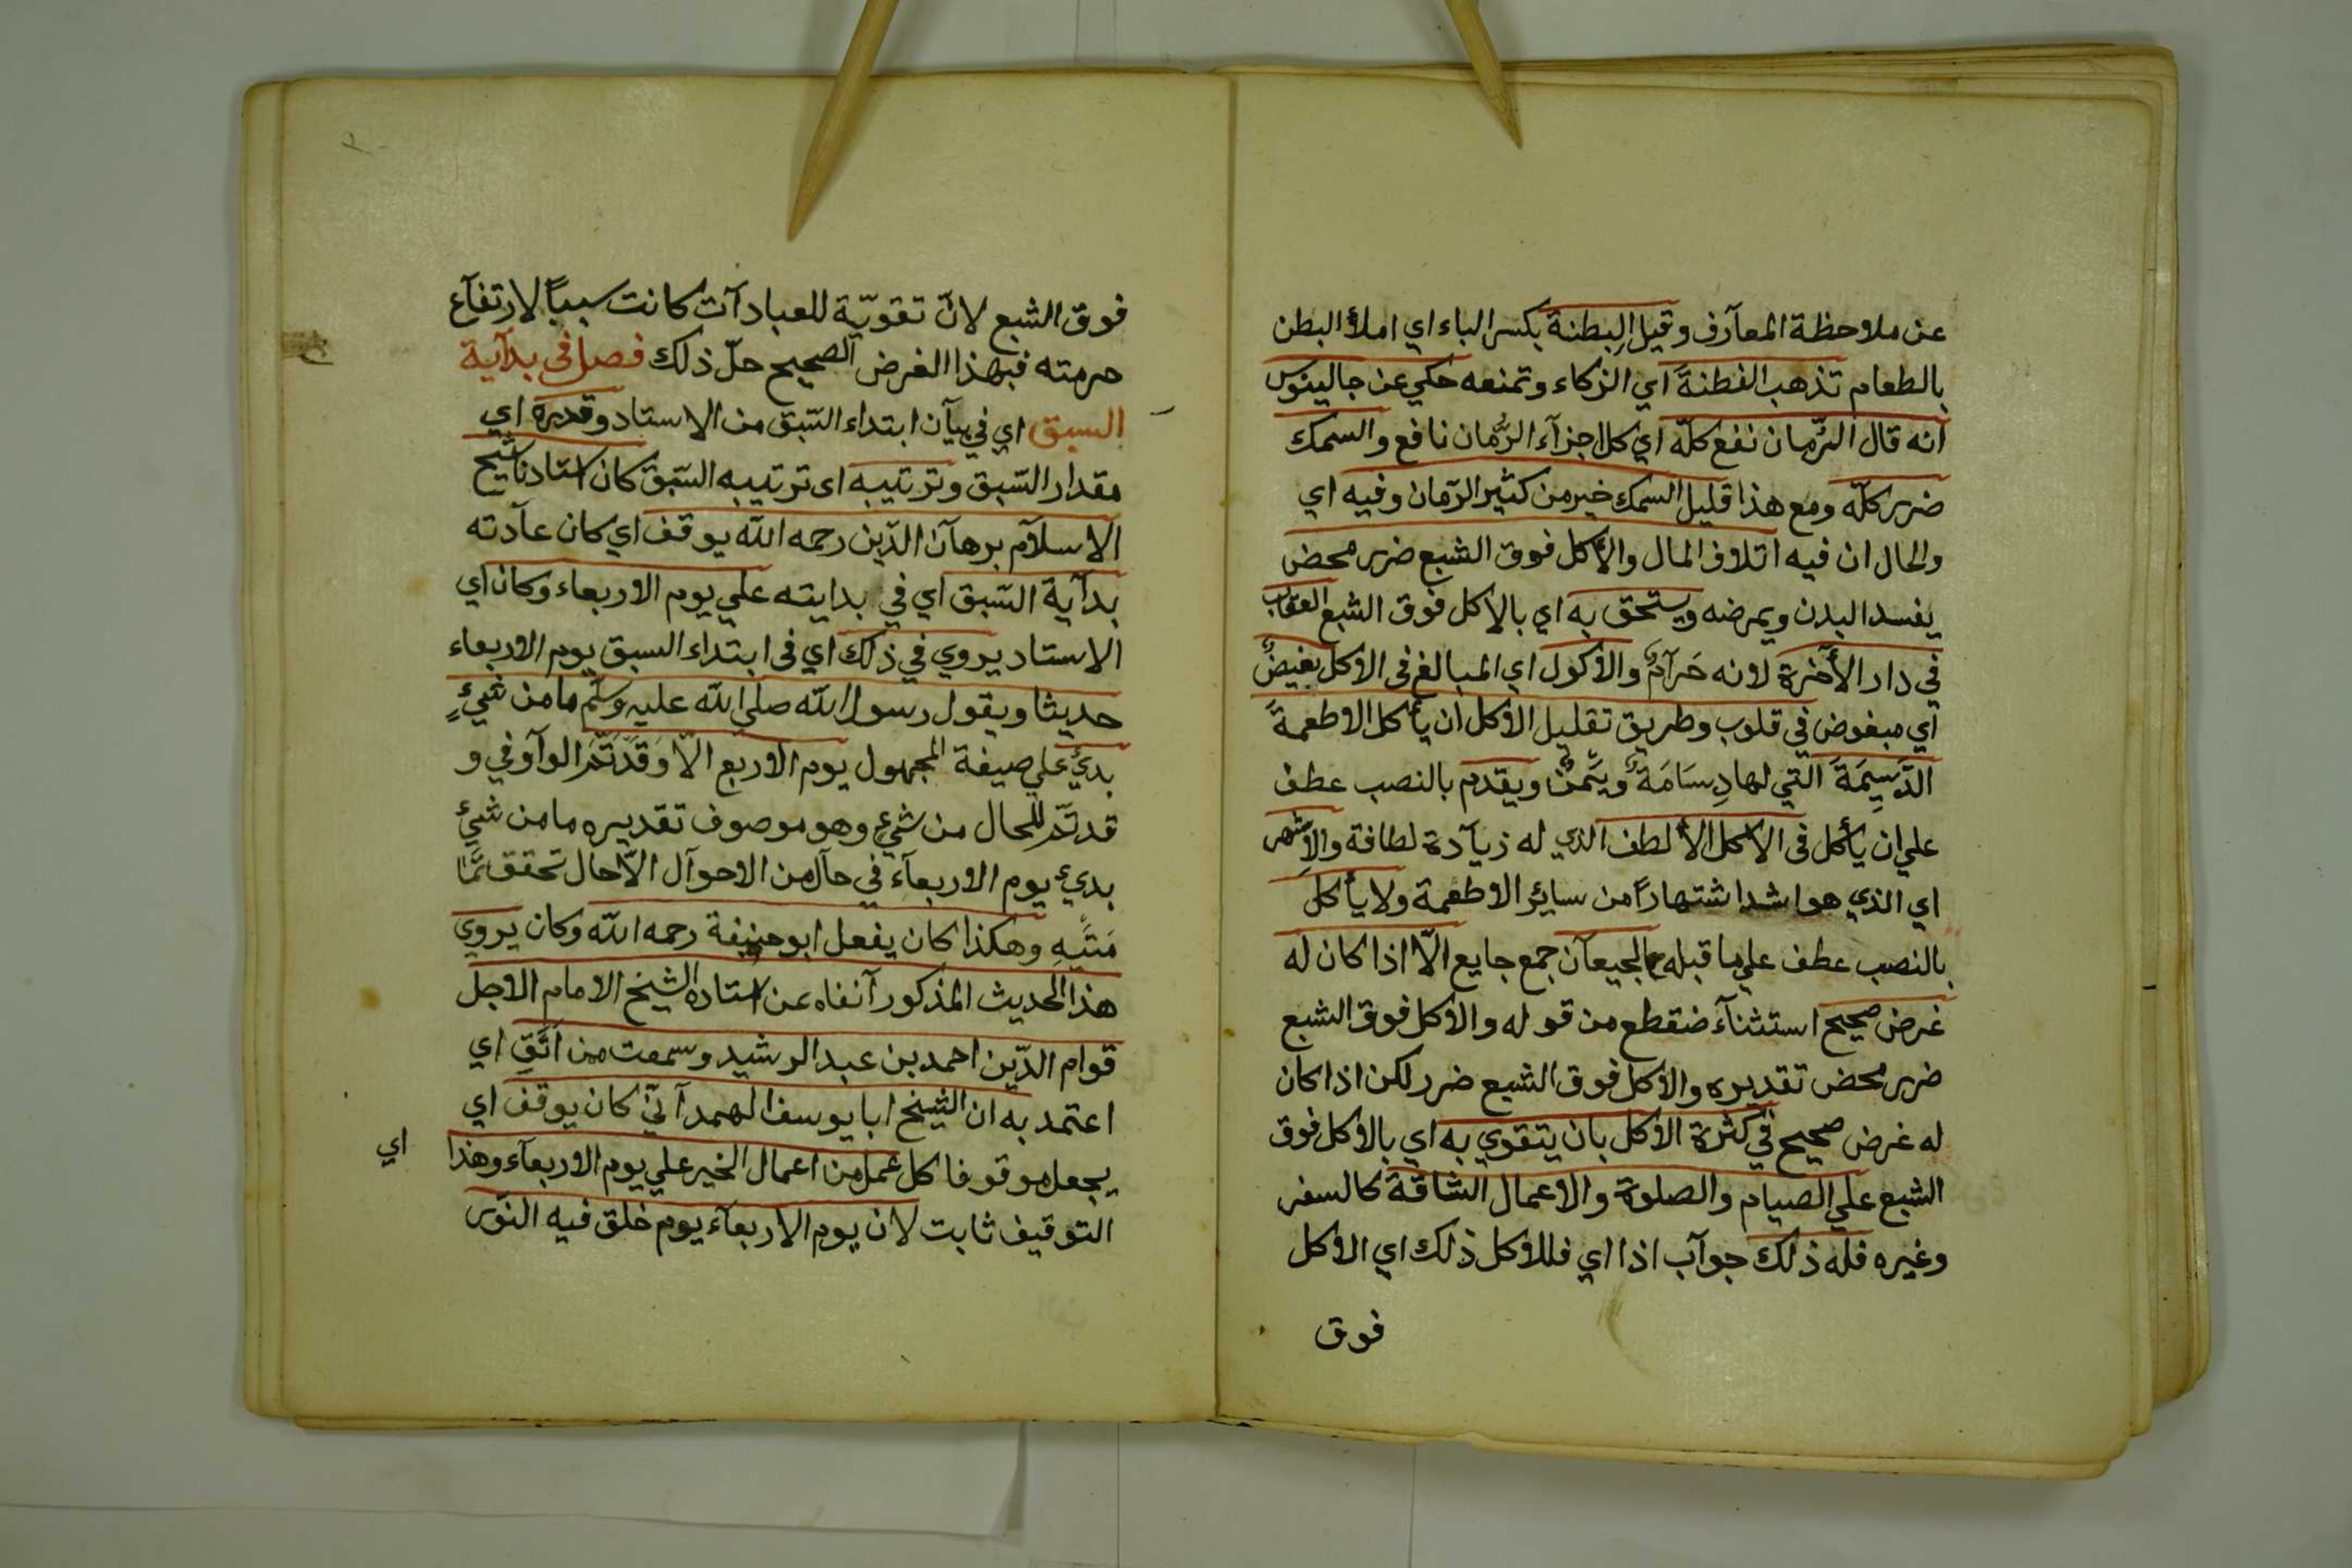 عن ملاحظة المعآرف وقيل البِطنة بكسر الباء اي املأ البطن
بالطعام تذهب الفطنةَ اي الزكاء وتمنعه حكي عن جالينوس
انه قال الرّمان نفع كلّه اي كل اجزآء الرّمان نافع والسمك
ضرر كلّه ومع هذا قليل السمك خير من كثير الرّمان وفيه اي
والحال ان فيه اتلاف المال والأكل فوق الشبع ضرر محض
يفسد البدن ويمرضه ويستحق به اي بالاكل فوق الشبع العقاب
في دار الأخرة لانه حَرَآمٌ والاكول اي المبالغ فى الاكل بغيضٌ
اي مبغوض في قلوب وطريق تقليل الاكل ان يأكل الاطعمةَ
الدَّسِيمَةَ التي لها دِسَامَةٌ ويَّمنٌ ويقدم بالنصب عطف
علي ان يأكل فى الاكل الألطف الذي له زيآدة لطافة والاشهر
اي الذي هو اشد اشتهاراً من سائر الاطعمة ولا يأكل
بالنصب عطف علي ما قبله مع الجيعآن جمع جايع الّا اذا كان له
غرض صحيح استثنآء منقطع من قوله والاكل فوق الشبع
ضرر محض تقديره والاكل فوق الشبع ضرر لكن اذا كان
له غرض صحيح في كثرة الاكل بان يتقوي به اي بالاكل فوق
الشبع علي الصيام والصلوة والاعمال الشاقة كالسفر
وغيره فله ذلك جوآب اذا اي فللاكل ذلك اي الاكل
فوق
فوق الشبع لانّ تقويّة للعبادآت كانت سبباً لارتفآع
حرمته فبهذا الغرض الصحيح حلّ ذلك فصل في بدآية
السبق اي في بيآن ابتداء السّبق من الاستاد وقدره اي
مقدار السّبق وترتيبه اى ترتيبه السّبق كان استادنا شيخ
الاسلآم برهآن الدّين رحمه اللّه يوقف اي كان عآدته
بدآية السّبق اي في بدايته علي يوم الاربعاء وكان اي
الاستاد يروي في ذلك اي فى ابتداء السبق يوم الاربعاء
حديثا ويقول رسول اللّه صلي اللّه عليه وسلّم ما من شيءٍ
بدئ علي صيغة المجهول يوم الاربع الّا وَقَدتَّمَ الوآو في و
قد تمّ للحال من شيء وهو موصوف تقديره ما من شيءٍ
بديء يوم الاربعآء في حآل من الاحوآل الّا حال تحقق تمّا
مَتِّيهِ وهكذا كان يفعل ابو حنيفة رحمه اللّه وكان يروي
هذا الحديث المذكور آنفاه عن استاده الشيخ الامام الاجل
قوام الدّين احمد بن عبد الرشيد وسمعت من اَثَقِ اي
اعتمد به ان الشيخ ابا يوسف الهمدآنّي كان يوقف اي
يجعل موقوفا كل عمل من اعمال الخير علي يوم الاربعآء وهذا اي
التوقيف ثابت لان يوم الاربعآء يوم خلق فيه النّور